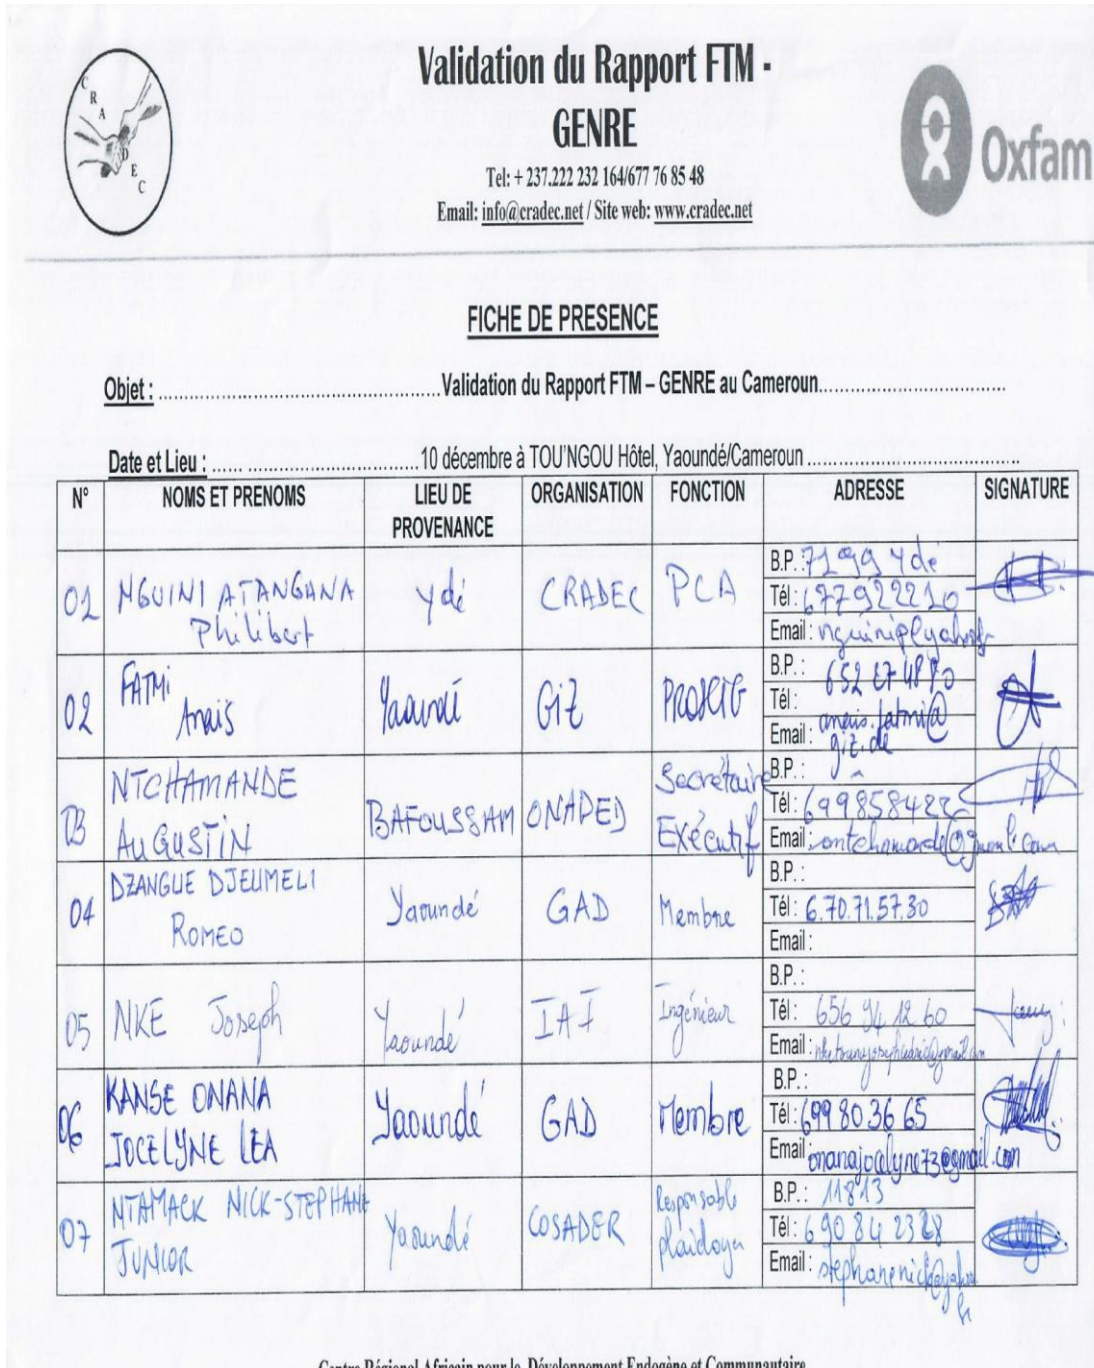 CRADEC
Validation du Rapport FTM -
GENRE
Tel: + 237.222 232 164/677 76 85 48
Email: info@cradec.net / Site web: www.cradec.net
Oxfam
FICHE DE PRESENCE
Objet : ........ Validation du Rapport FTM – GENRE au Cameroun........
Date et Lieu : ........ 10 décembre à TOU'NGOU Hôtel, Yaoundé/Cameroun ........
N° NOMS ET PRENOMS LIEU DE PROVENANCE ORGANISATION FONCTION ADRESSE SIGNATURE
01 NGUINI ATANGANA Philibert Ydé CRADEC PCA
B.P. : 7199 Ydé
Tél : 677922210
Email :
02 FATMI Anaïs Yaoundé GIZ
B.P. :
Tél : 652 87 48 80
Email : anais.fatmi@giz.de
03 NTCHAMANDE AUGUSTIN BAFOUSSAM ONADED Secrétaire Exécutif
B.P. :
Tél : 699858422
Email :
04 DZANGUE DJEUMELI ROMEO Yaoundé GAD Membre
B.P. :
Tél : 6.70.71.57.30
Email :
05 NKE Joseph Yaoundé IAI Ingénieur
B.P. :
Tél : 656 94 12 60
Email :
06 KANSE ONANA JOCELYNE LEA Yaoundé GAD Membre
B.P. :
Tél : 699 80 36 65
Email : onanajocelyne73@gmail.com
07 NTAMACK NICK-STEPHANE JUNIOR Yaoundé COSADER Responsable plaidoyer
B.P. : 11813
Tél : 690 84 23 28
Email : stephanenick@yahoo.fr
Centre Régional Africain pour le Développement Endogène et Communautaire